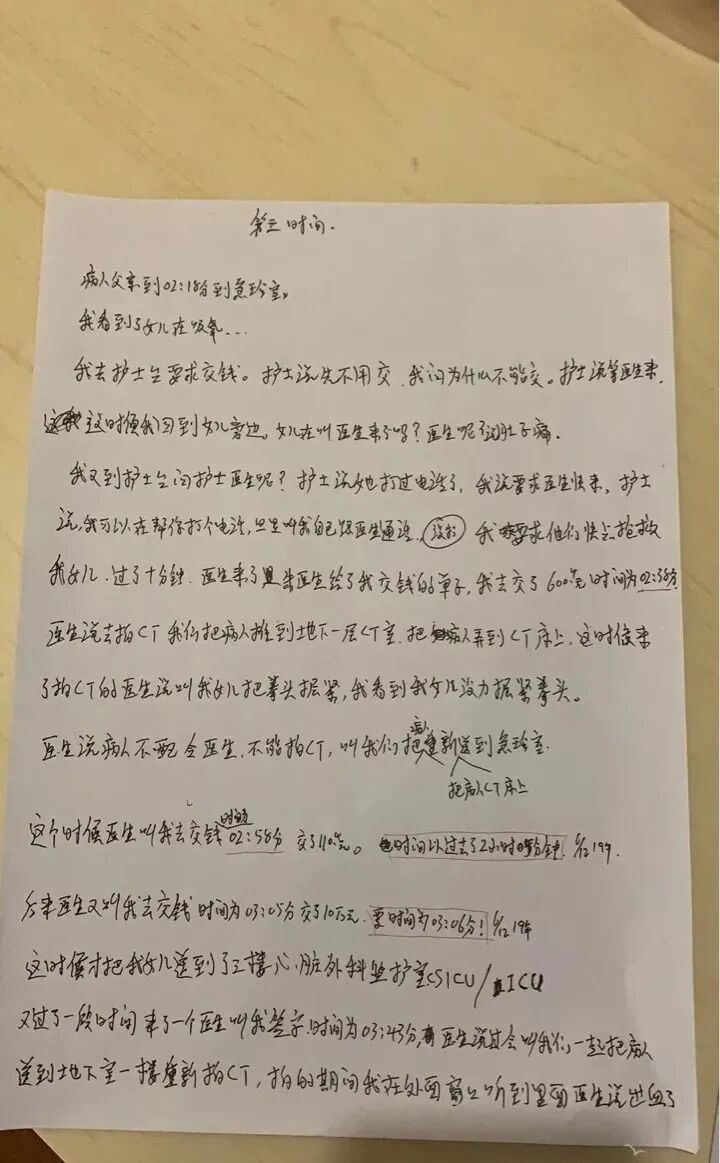 第三时间.
病人父亲到02:18分到急珍室。
我看到了女儿在吸氧...
我去护士台要求交钱。护士说先不用交.我问为什么不能交。护士说等医生来.
这时候我回到女儿旁边。女儿在叫医生来了吗?医生呢?肚子痛.
我又到护士台问护士医生呢?护士说她打过电话了,我说要求医生快来,护士
说,我可以在帮你打个电话,但是叫我自己跟医生通话. 我要求他们快点抢救
我女儿.过了十分钟.医生来了 医生给了我交钱的单子,我去交了600元时间为02:38分
医生说去拍CT我们把病人推到地下一层CT室.把病人弄到CT床上,这时候来
了拍CT的医生说叫我女儿把拳头握紧,我看到我女儿没力握紧拳头。
医生说病人不配合医生,不能拍CT,叫我们把病人重新送到急珍室.
把病人CT床上
这个时候医生叫我去交钱时间02:58分 交了110元。 时间以过去了2小时 分钟! 6/12 19年.
后来医生又叫我去交钱时间为03:05分交了10万元. 时间为03:06分! 6/12 19年
这时候才把我女儿送到了三楼心脏外科监护室CSICU/ICU
又过了一段时间来了一个医生叫我签字时间为03:43分,医生说过会叫我们,一起把病人
送到地下室一楼重新拍CT,拍的期间我在外面窗口听到里面医生说出血了